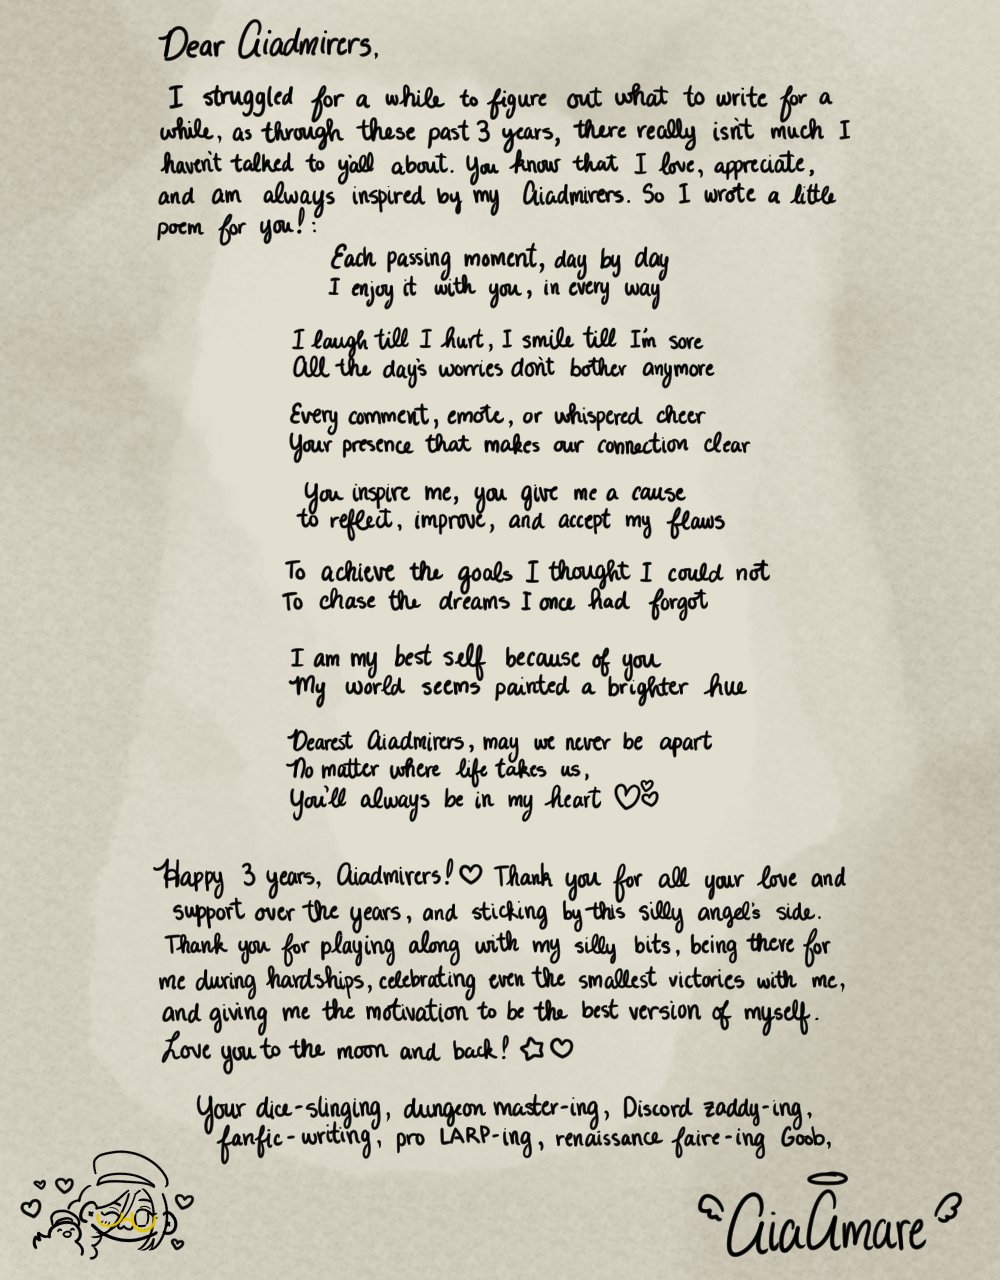 Dear Aiadmirers,
I struggled for a while to figure out what to write for a
while, as through these past 3 years, there really isn't much I
haven't talked to y'all about. You know that I love, appreciate,
and am always inspired by my Aiadmirers. So I wrote a little
poem for you! :
Each passing moment, day by day
I enjoy it with you, in every way
I laugh till I hurt, I smile till I'm sore
All the day's worries don't bother anymore
Every comment, emote, or whispered cheer
Your presence that makes our connection clear
You inspire me, you give me a cause
to reflect, improve, and accept my flaws
To achieve the goals I thought I could not
To chase the dreams I once had forgot
I am my best self because of you
My world seems painted a brighter hue
Dearest Aiadmirers, may we never be apart
No matter where life takes us,
You'll always be in my heart ♡♡♡
Happy 3 years, Aiadmirers! ♡ Thank you for all your love and
support over the years, and sticking by this silly angel's side.
Thank you for playing along with my silly bits, being there for
me during hardships, celebrating even the smallest victories with me,
and giving me the motivation to be the best version of myself.
Love you to the moon and back! ☆♡
Your dice-slinging, dungeon master-ing, Discord zaddy-ing,
fanfic-writing, pro LARP-ing, renaissance faire-ing Goob,
AiaAmare